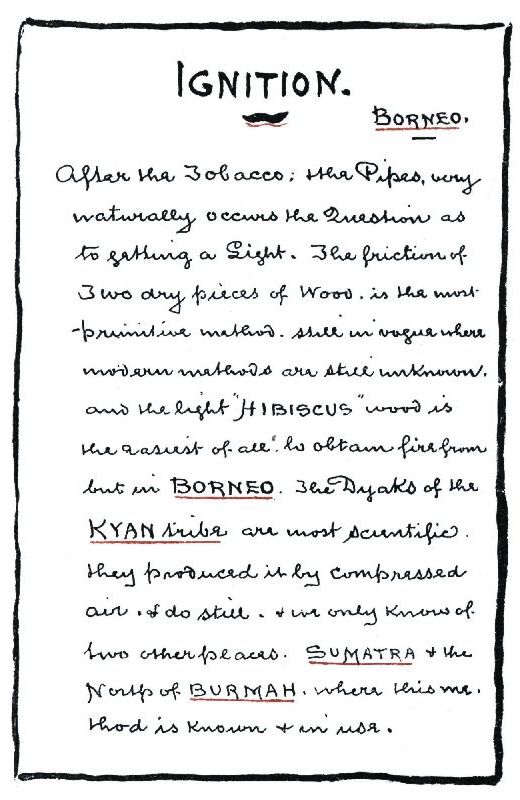 IGNITION.
BORNEO.
After the Tobacco; & the Pipes, very
naturally occurs the Question as
to getting a Light. The friction of
Two dry pieces of Wood. is the most
primitive method. still in vogue where
modern methods are still unknown.
and the light "HIBISCUS" wood is
the easiest of all. to obtain fire from
but in BORNEO. The Dyaks of the
KYAN tribe are most scientific.
they produced it by compressed
air. & do still. & we only know of
two other places. SUMATRA & the
North of BURMAH. where this me.
thod is known & in use.